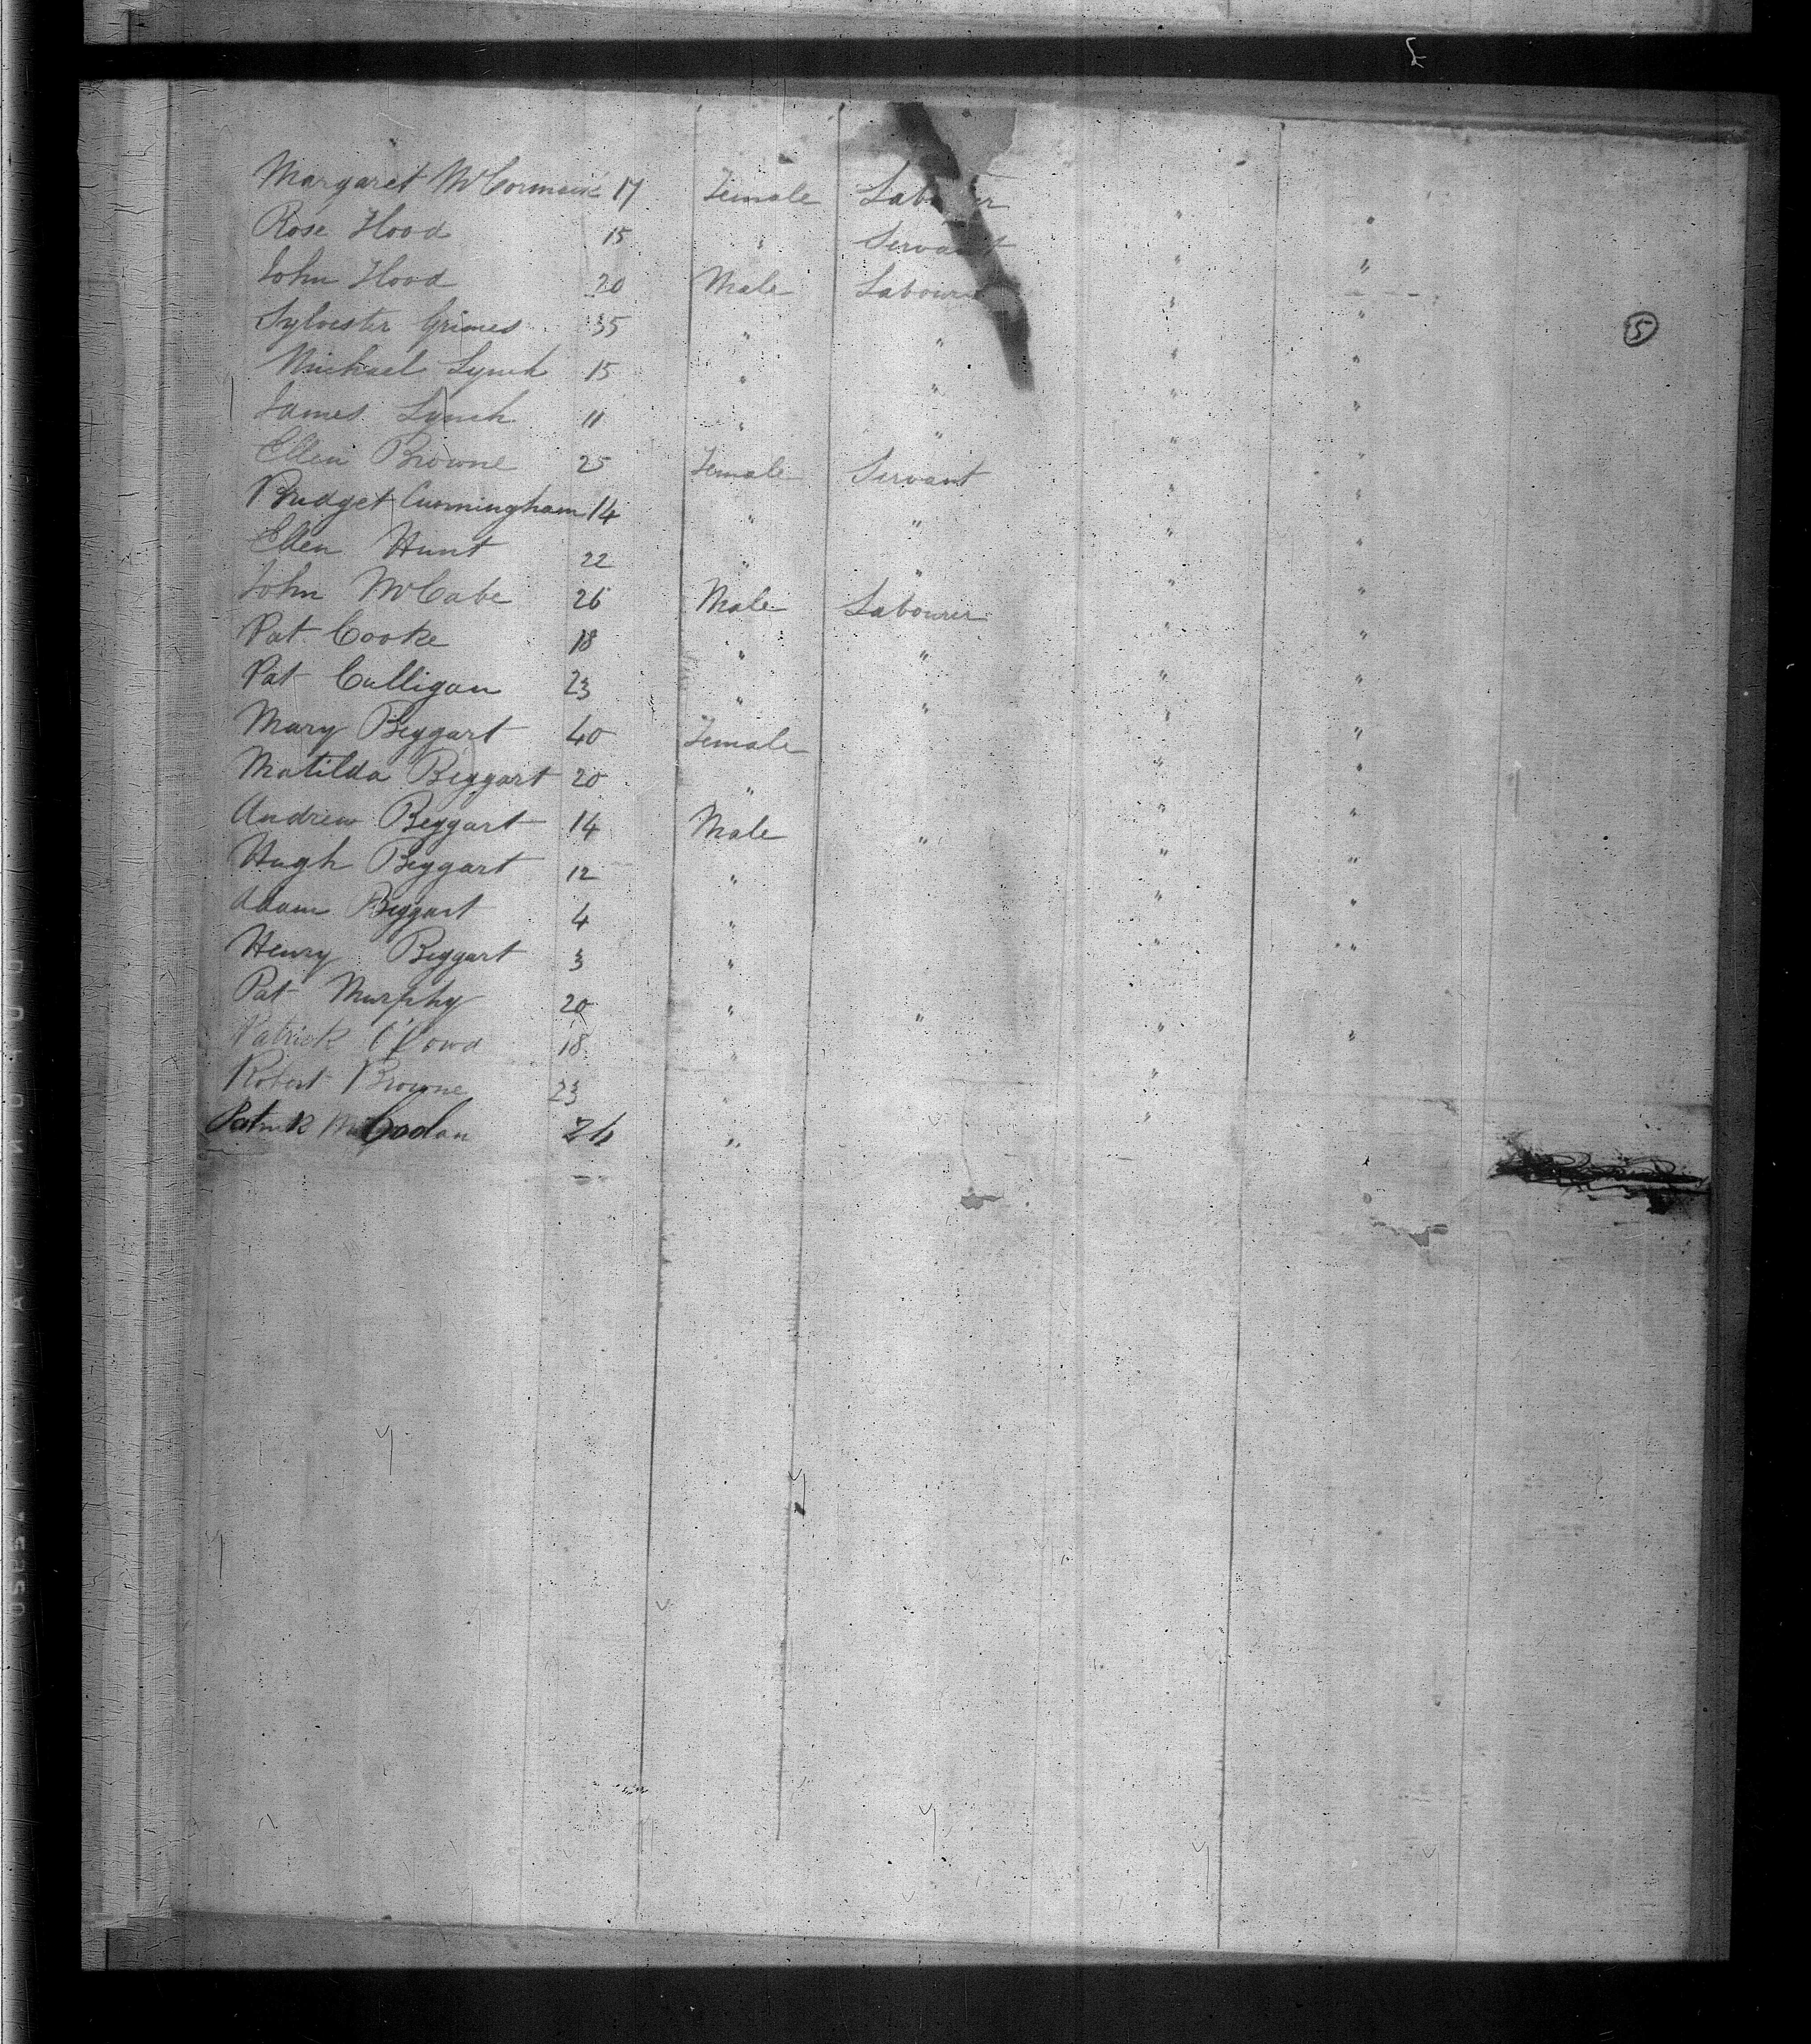 Margaret McCormack 17 Female Labourer " "
Rose Hood 15 " Servant " "
John Hood 20 Male Labourer " "
Sylvester Grimes 35 " " " "
Michael Lynch 15 " " " "
James Lynch 11 " " " "
Ellen Browne 25 Female Servant " "
Bridget Cunningham 14 " " " "
Ellen Hunt 22 " " " "
John McCabe 26 Male Labourer " "
Pat Cooke 18 " " " "
Pat Culligan 23 " " " "
Mary Beggart 40 Female " "
Matilda Beggart 20 " " "
Andrew Beggart 14 Male " " "
Hugh Beggart 12 " " "
Adam Beggart 4 " " "
Henry Beggart 3 " " "
Pat Murphy 20 " " " "
Patrick O'Dowd 18 " "
Robert Browne 23 " "
Patrick 26 "
5